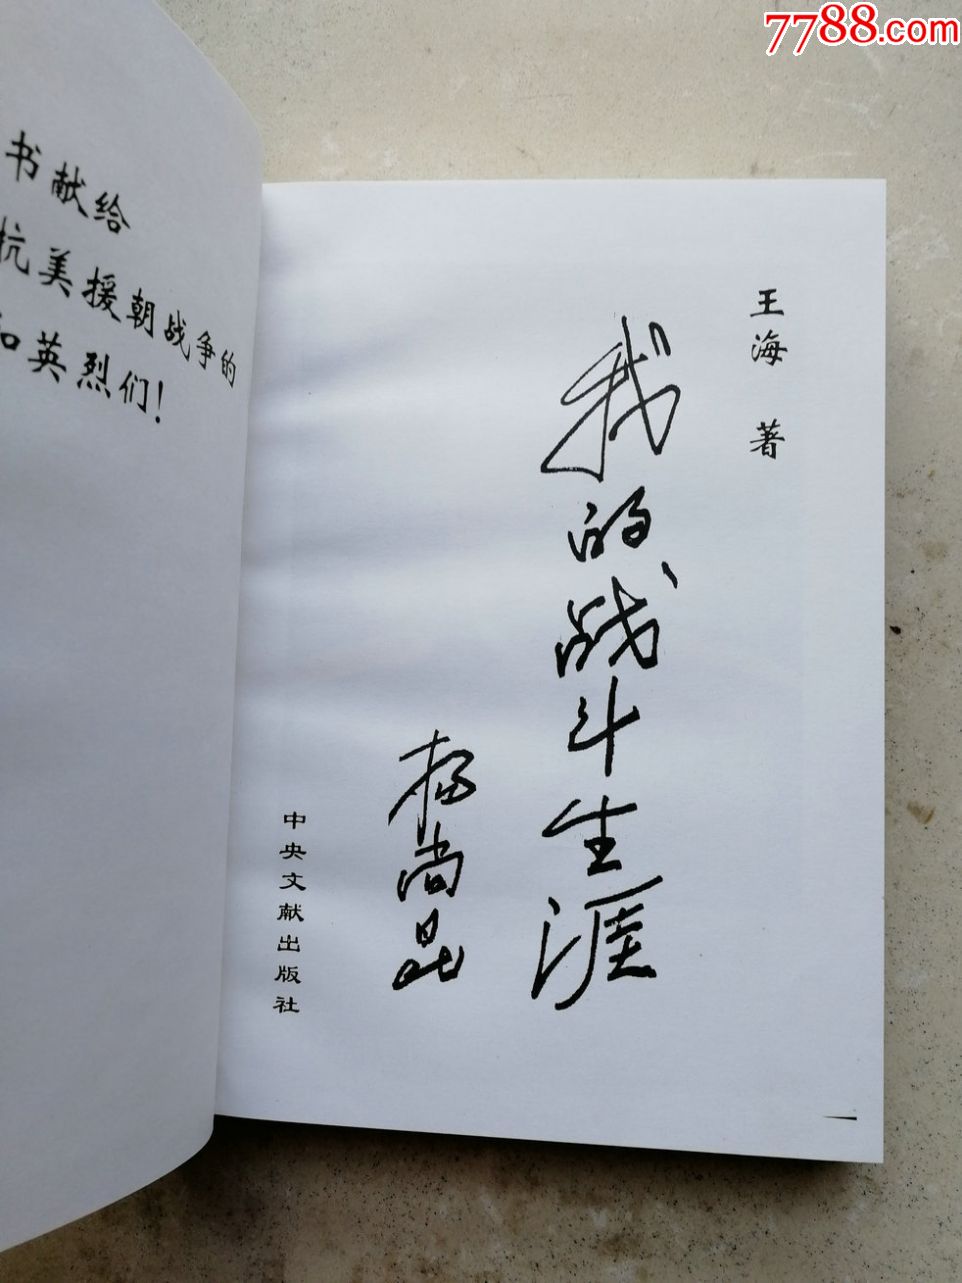 7788.com
书献给
抗美援朝战争的
和英烈们！
王海 著
我的战斗生涯
杨尚昆
中央文献出版社